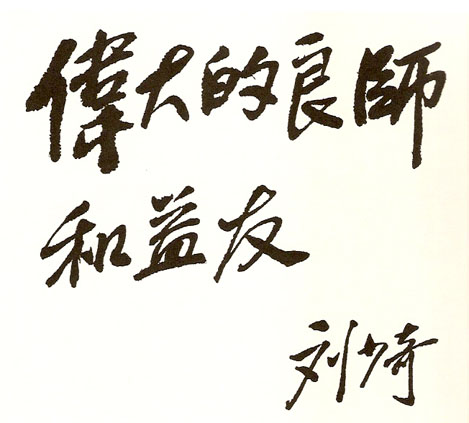 偉大的良師
和益友
刘少奇